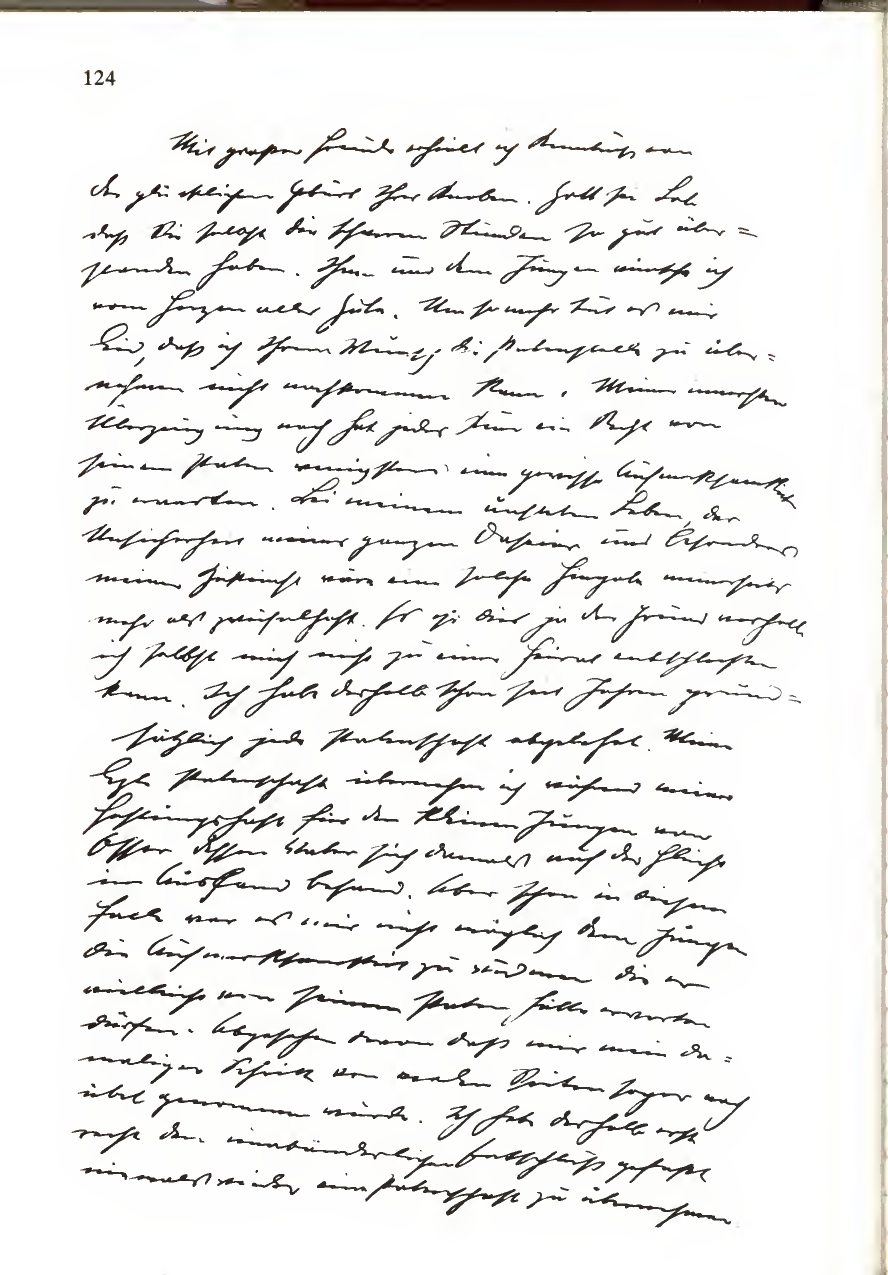 124
Mit großer Freude erhielt ich Kenntniß von
der glücklichen Geburt Ihres Knaben. Gott sei Lob
daß Sie selbst die schweren Stunden so gut über=
standen haben. Ihnen und dem Jungen wünsche ich
vom Herzen alles Gute. Um so mehr tut es mir
Leid, daß ich Ihrem Wunsch, die Patenstelle zu über=
nehmen nicht nachkommen kann. Meiner innersten
Überzeugung nach hat jedes Kind ein Recht von
seinem Paten wenigstens eine gewisse Aufmerksamkeit
zu erwarten. Bei meinem Leben, der
Unsicherheit meines ganzen Daseins und besonders
meiner Zukunft wäre eine solche Hingabe meinerseits
mehr als zweifelhaft. Es ist dies ja der Grund weshalb
ich selbst mich nicht zu einer Heirat entschließen
kann. Ich habe deshalb schon seit Jahren grund=
sätzlich jede Patenschaft abgelehnt. Meine
letzte Patenschaft übernahm ich während meiner
Festungshaft für den kleinen Jungen von
Esser dessen Vater sich damals auf der Flucht
im Ausland befand. Aber schon in diesem
Falle war es mir nicht möglich dem Jungen
die Aufmerksamkeit zu widmen die er
vielleicht von seinem Paten hätte erwarten
dürfen. Abgesehen davon daß mir mein da=
maliger Schritt von Seiten sogar noch
übel genommen wurde. Ich habe deshalb erst
recht den unabänderlichen Entschluß gefaßt
niemals wieder eine Patenschaft zu übernehmen